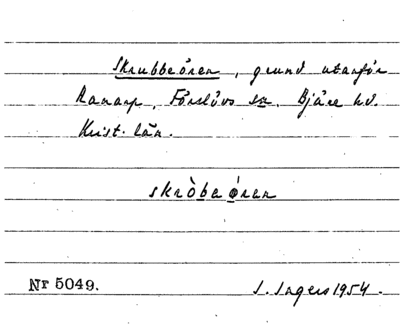 Skrubbeören, grund utanför
Ranarp, Förslövs sn. Bjäre hd.
Krist. län.
skròbeören
Nr 5049.
I. Ingers 1954.